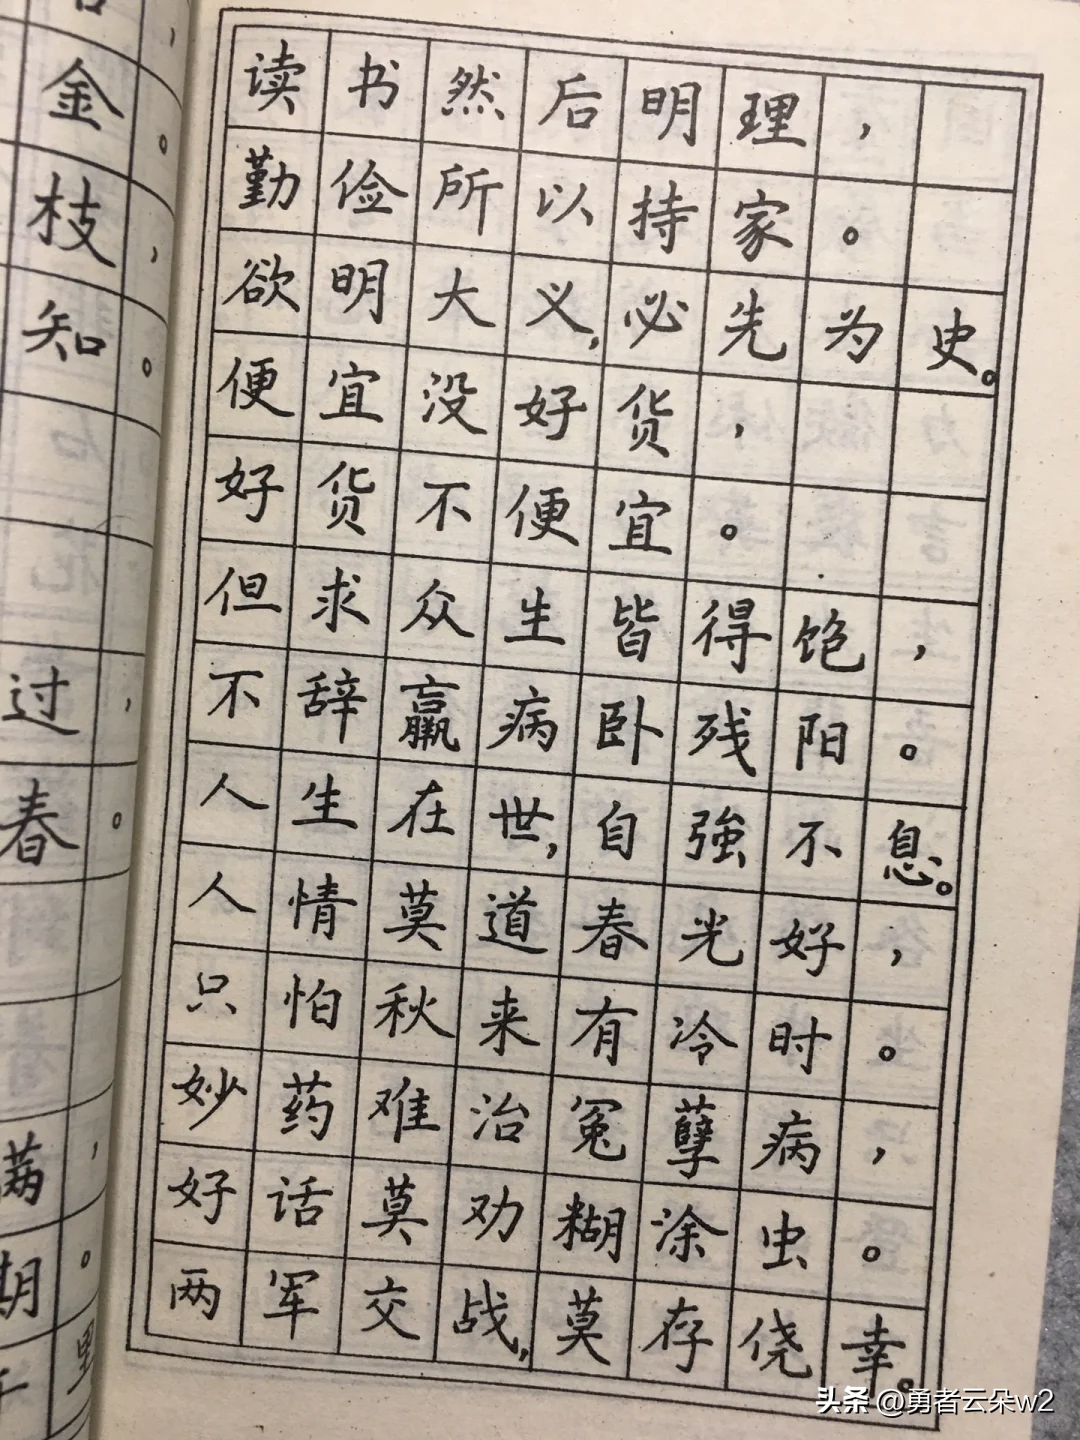 金
枝
知
过
春
满
期
里
读书然后明理，
勤俭所以持家。
欲明大义，必先为史。
便宜没好货，
好货不便宜。
但求众生皆得饱，
不辞羸病卧残阳。
人生在世，自強不息。
人情莫道春光好，
只怕秋来有冷时。
妙药难治冤孽病，
好话莫劝糊涂虫。
两军交战，莫存侥幸。
头条 @勇者云朵w2